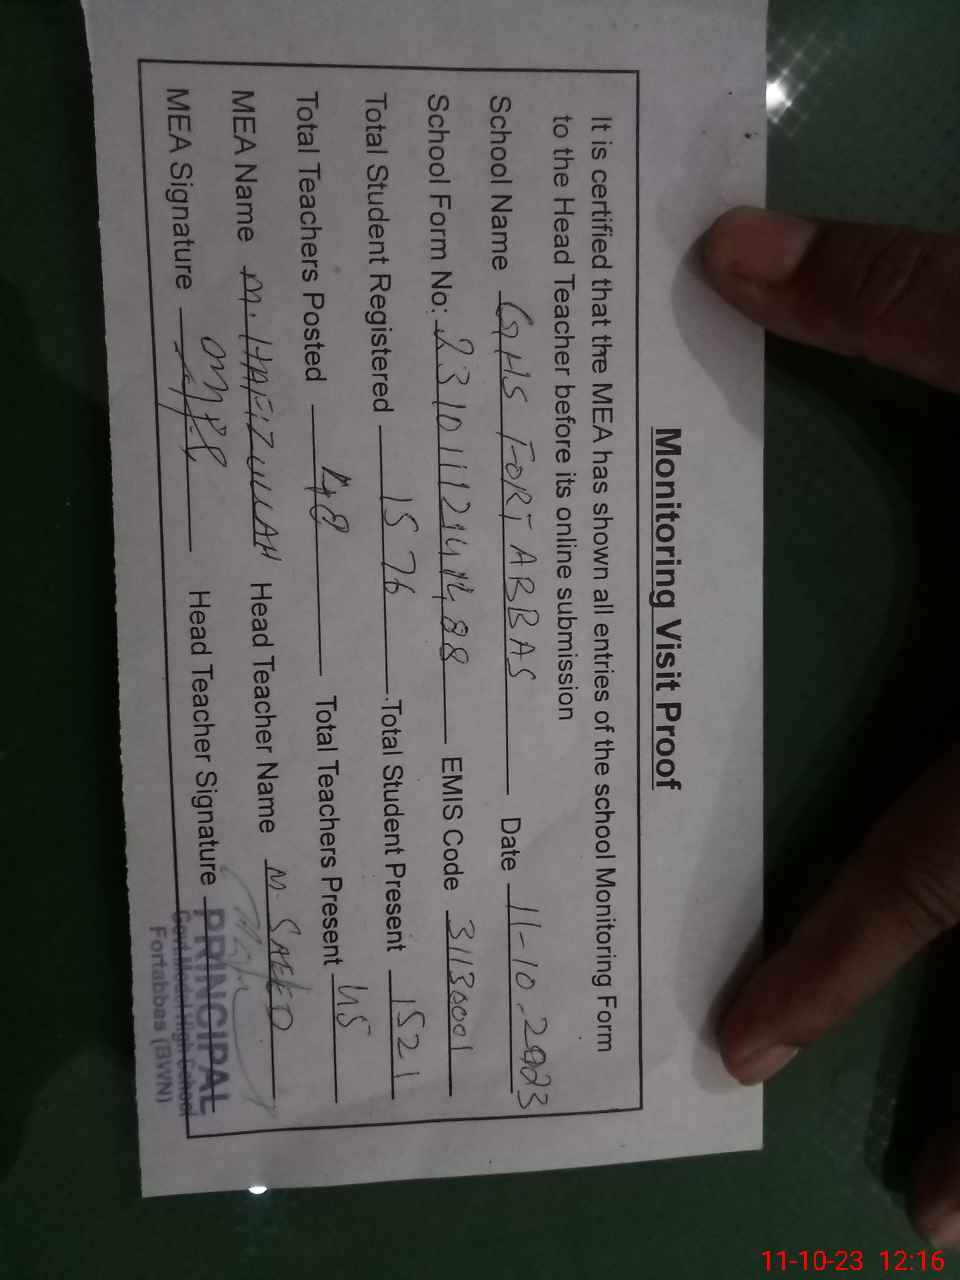 Monitoring Visit Proof
It is certified that the MEA has shown all entries of the school Monitoring Form
to the Head Teacher before its online submission
School Name GHS FORT ABBAS Date 11-10-2023
School Form No: EMIS Code 31130001
Total Student Registered 1576 Total Student Present 1521
Total Teachers Posted 48 Total Teachers Present 45
MEA Name M. HAFIZULLAH Head Teacher Name M. SAEED
MEA Signature Head Teacher Signature
PRINCIPAL
Govt Model High School
Fortabbas (BWN)
11-10-23 12:16